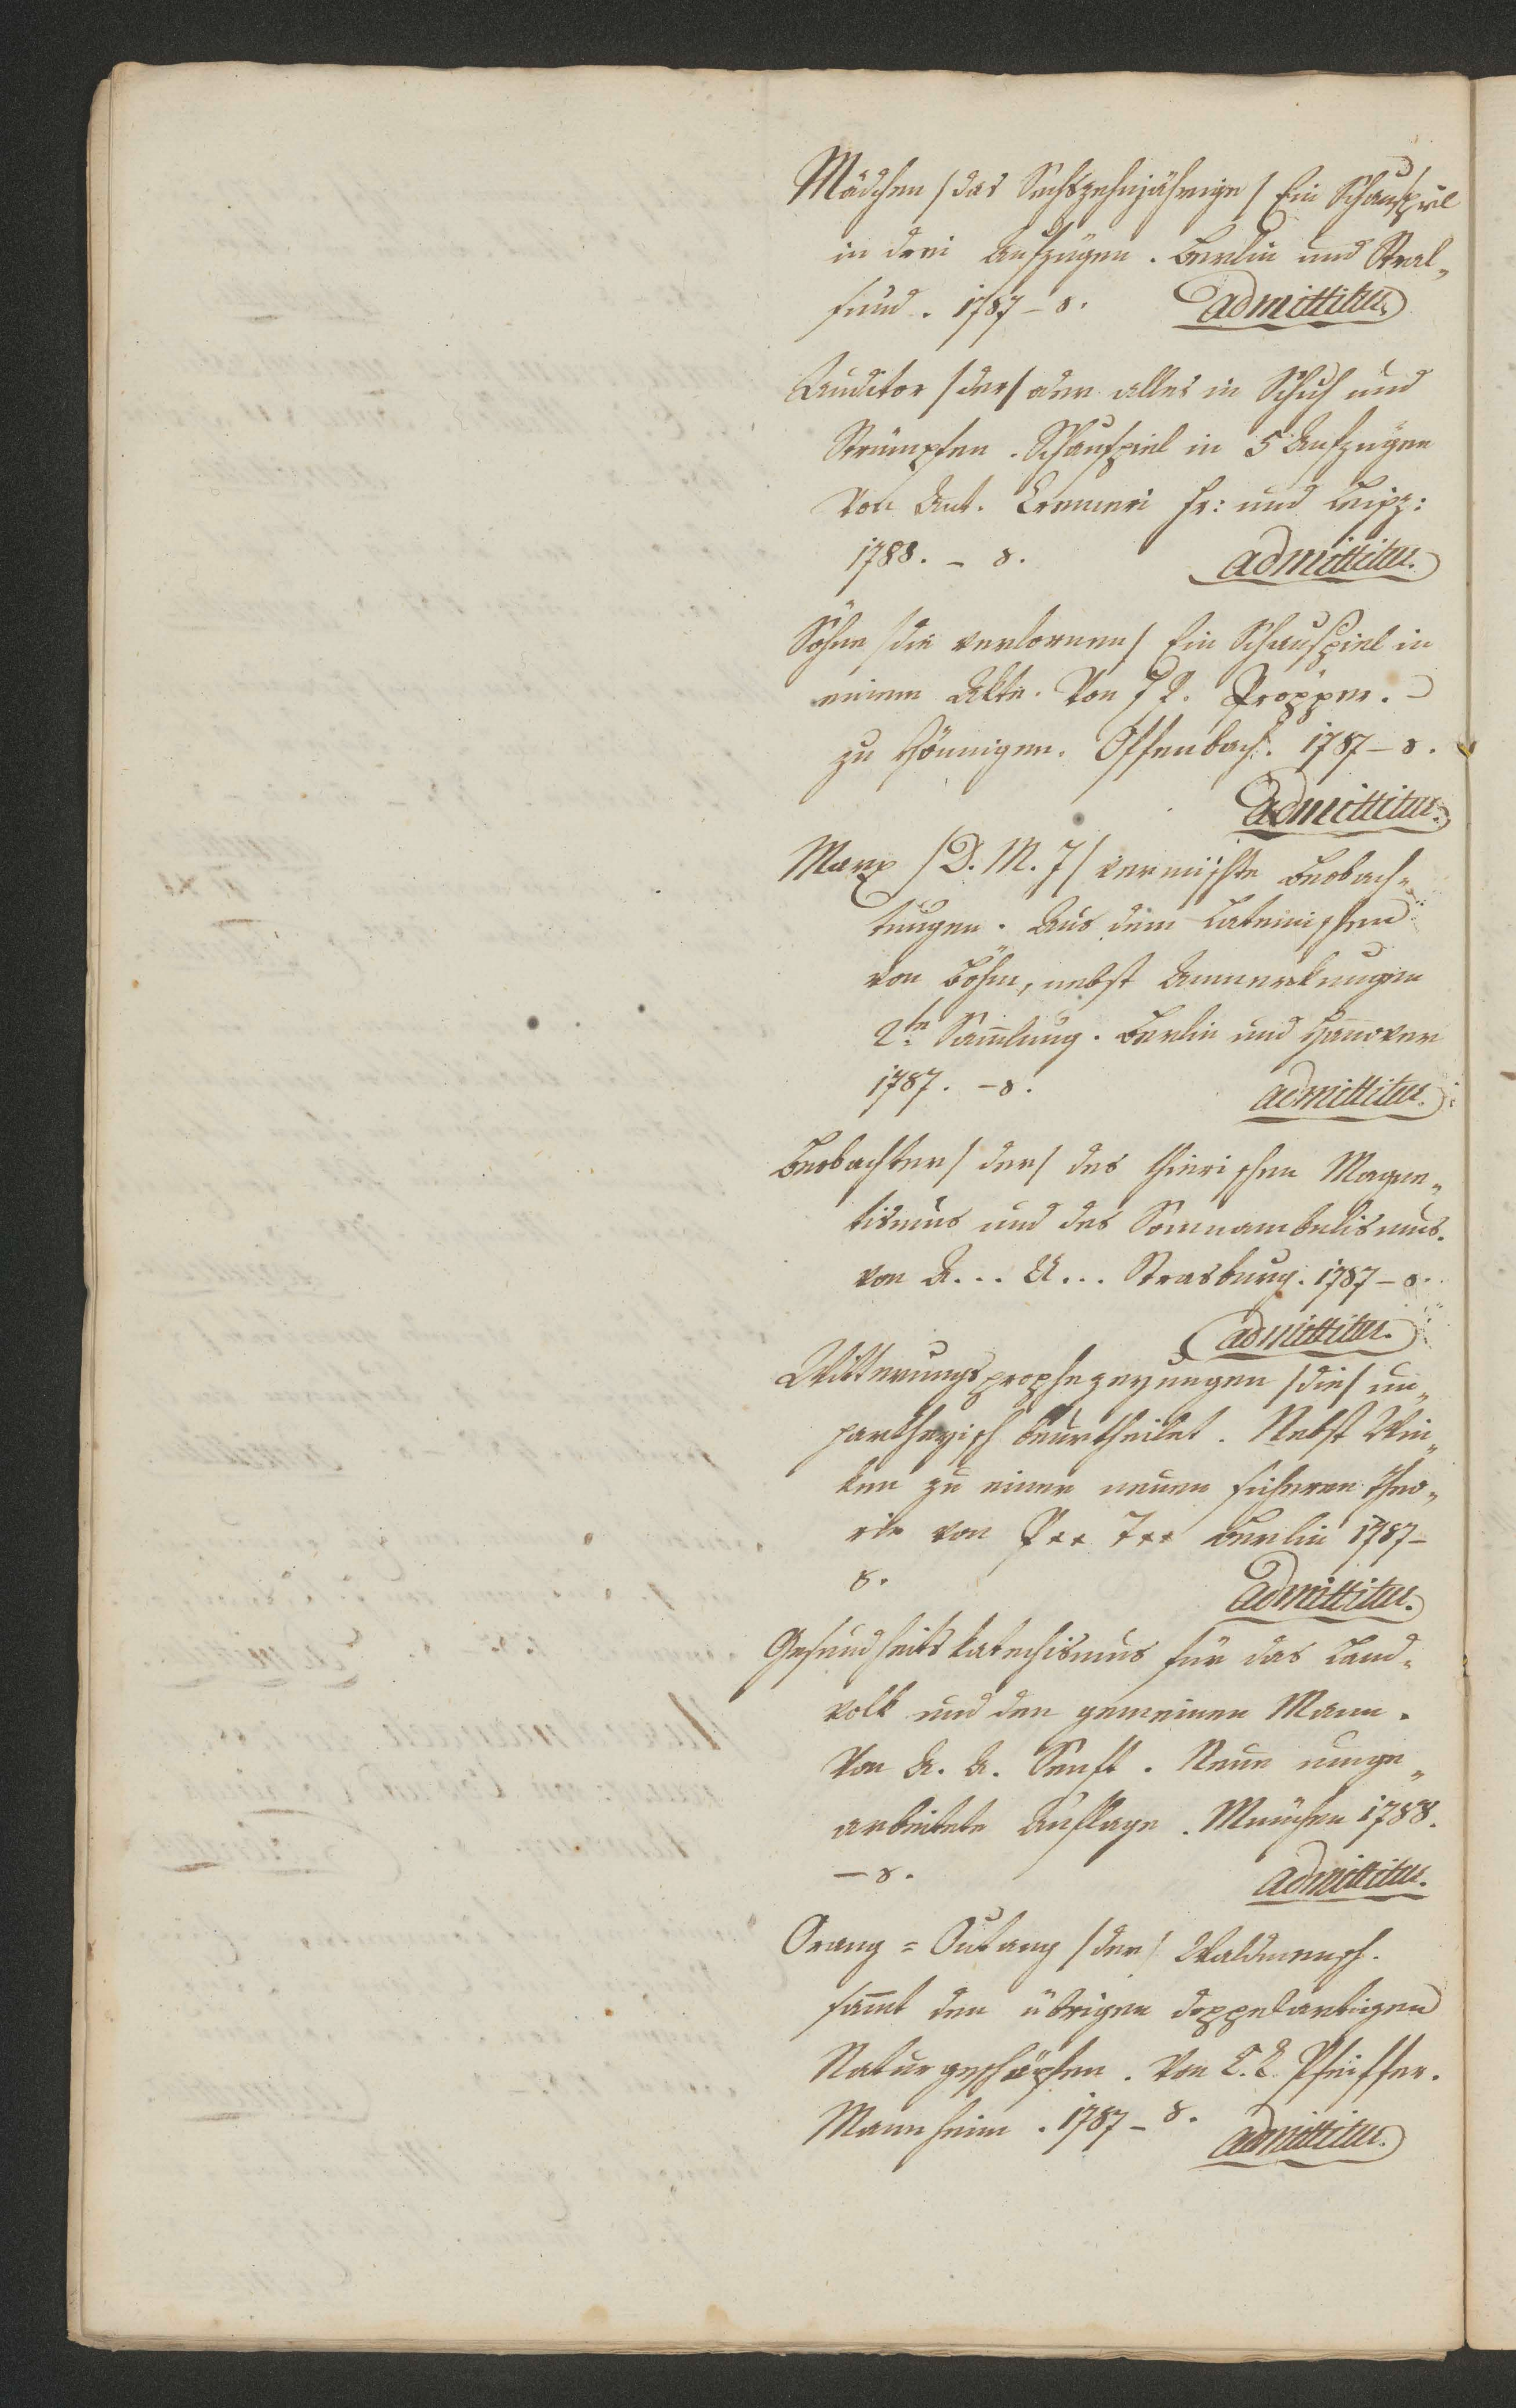 Mädchen /das Sechszehnjährige/ Ein Schauspiel
in drei Aufzügen. Berlin und Stral„
sund. 1787 – 8. admittitur
Auditor /der/ oder alles in Schuh und
Strümpfen. Schauspiel in 5 Aufzügen
Von Ant. Cremeri Fr: und Leipz:
1788. – 8. admittitur.
Söhne /die verlornen/ Ein Schauspiel in
einem Akte. Von J P. Pröpper.
zu Hönnigen. Offenbach. 1787 – 8.
admittitur.
Marx /D. M. J/ vermischte Beobach„
tungen. Aus dem Lateinischen
von Böhm, nebst Anmerkungen
2te Sam̄lung. Berlin und Hanover
1787. – 8. admittitur.
Beobachter /der/ des thierischen Magne„
tismus und des Somnambulismus.
von A... A... Strasburg. 1787 – 8.
admittitur.
Witterungsprophezeyungen /die/ un„
partheyisch beurtheilet. Nebst Win„
ken zu einer neuen sicheren Theo„
rie von P** J** Berlin 1787 –
8. admittitur.
Gesundheitskatechismus für das Land„
volk und den gemeinen Mann.
Von A. A. Senft. Neue umge„
arbeitete Auflage. München 1788.
– 8. admittitur.
Orang = Outang /der/ Waldmensch.
sam̄t den übrigen doppelartigen
Naturgeschöpfen. Von C. L. Pfeiffer.
Mannheim. 1787 – 8. admittitur.